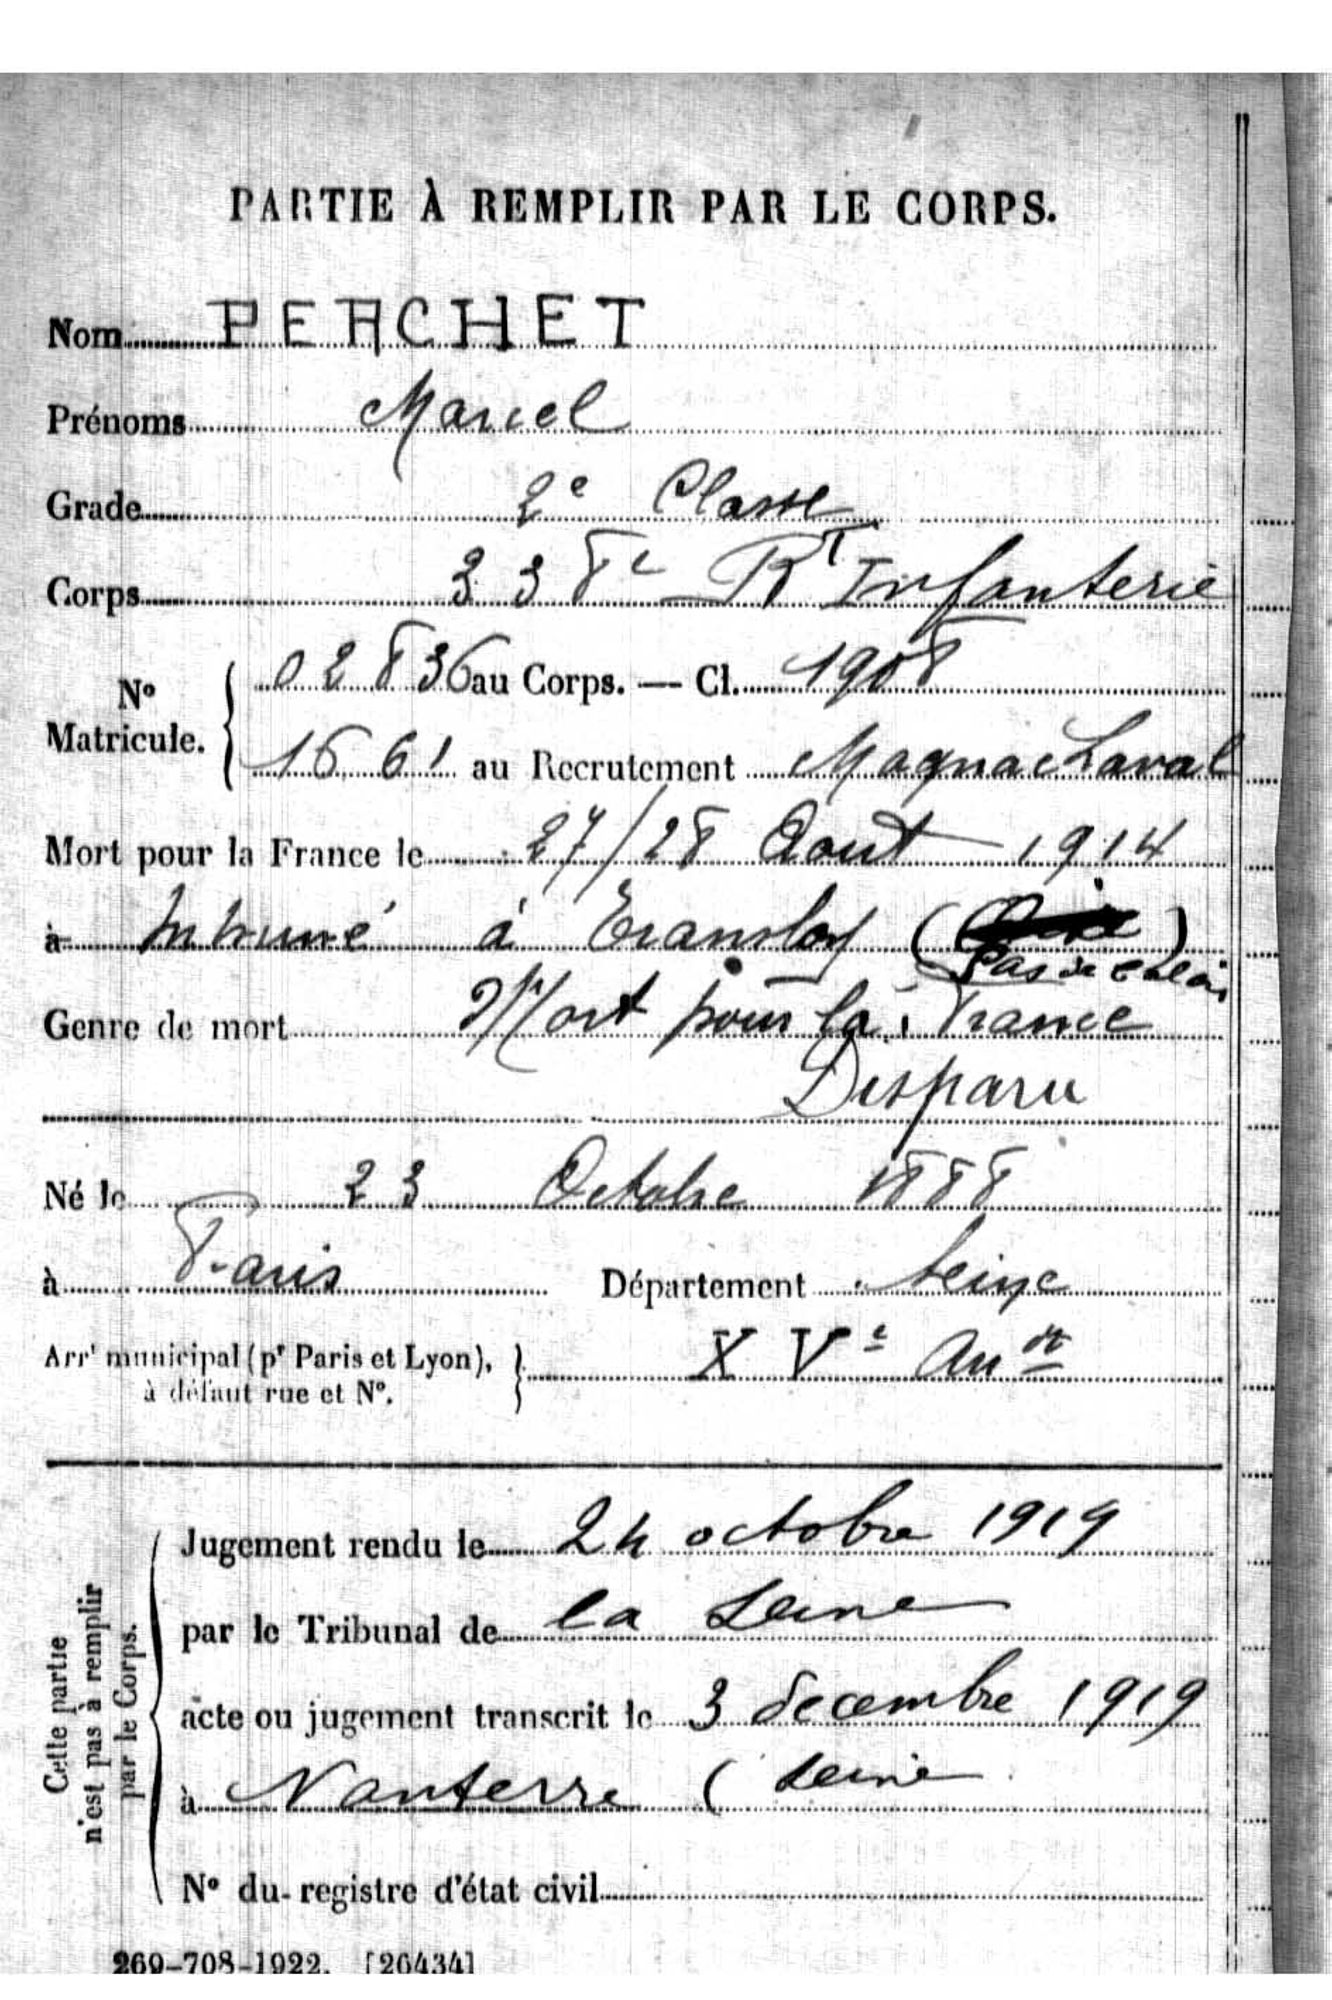 PARTIE À REMPLIR PAR LE CORPS.
Nom PERCHET
Prénoms Marcel
Grade 2e Classe
Corps 338e RT Infanterie
No Matricule. 02836 au Corps. — Cl. 1908
1661 au Recrutement Magnac Laval
Mort pour la France le 27/28 Aout 1914
à Inhumé à Transloy ( )
Pas de Calais
Genre de mort Mort pour la France
Disparu
Né le 23 Octobre 1888
à Paris Département Seine
Arrt municipal (pr Paris et Lyon), à défaut rue et No. XVe Arrdt
Cette partie n'est pas à remplir par le Corps.
Jugement rendu le 24 octobre 1919
par le Tribunal de la Seine
acte ou jugement transcrit le 3 decembre 1919
à Nanterre ( Seine
No du registre d'état civil
269-708-1922. [26434]